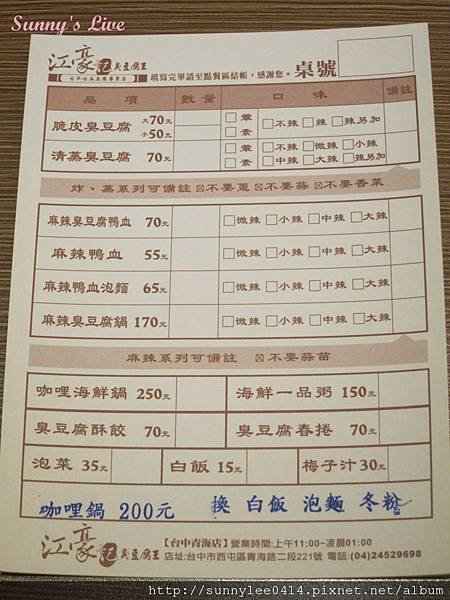 Sunny's Live
江豪記臭豆腐王
填寫完畢請至點餐區結帳，感謝您。桌號
品項 數量 口味 備註
脆皮臭豆腐 大70元 小50元 □葷 □素 □不辣 □辣 □辣另加
清蒸臭豆腐 70元 □葷 □素 □不辣 □微辣 □小辣 □中辣 □大辣 □辣另加
炸、蒸系列可備註 ☒不要蔥 ☒不要蒜 ☒不要香菜
麻辣臭豆腐鴨血 70元 □微辣 □小辣 □中辣 □大辣
麻辣鴨血 55元 □微辣 □小辣 □中辣 □大辣
麻辣鴨血泡麵 65元 □微辣 □小辣 □中辣 □大辣
麻辣臭豆腐鍋 170元 □微辣 □小辣 □中辣 □大辣
麻辣系列可備註 ☒不要蒜苗
咖哩海鮮鍋 250元 海鮮一品粥 150元
臭豆腐酥餃 70元 臭豆腐春捲 70元
泡菜 35元 白飯 15元 梅子汁 30元
咖哩鍋 200元 換 白飯 泡麵 冬粉
江豪記臭豆腐王
【台中青海店】營業時間:上午11:00~凌晨01:00
店址:台中市西屯區青海路二段221號 電話:(04)24529698
http://sunnylee0414.pixnet.net/album